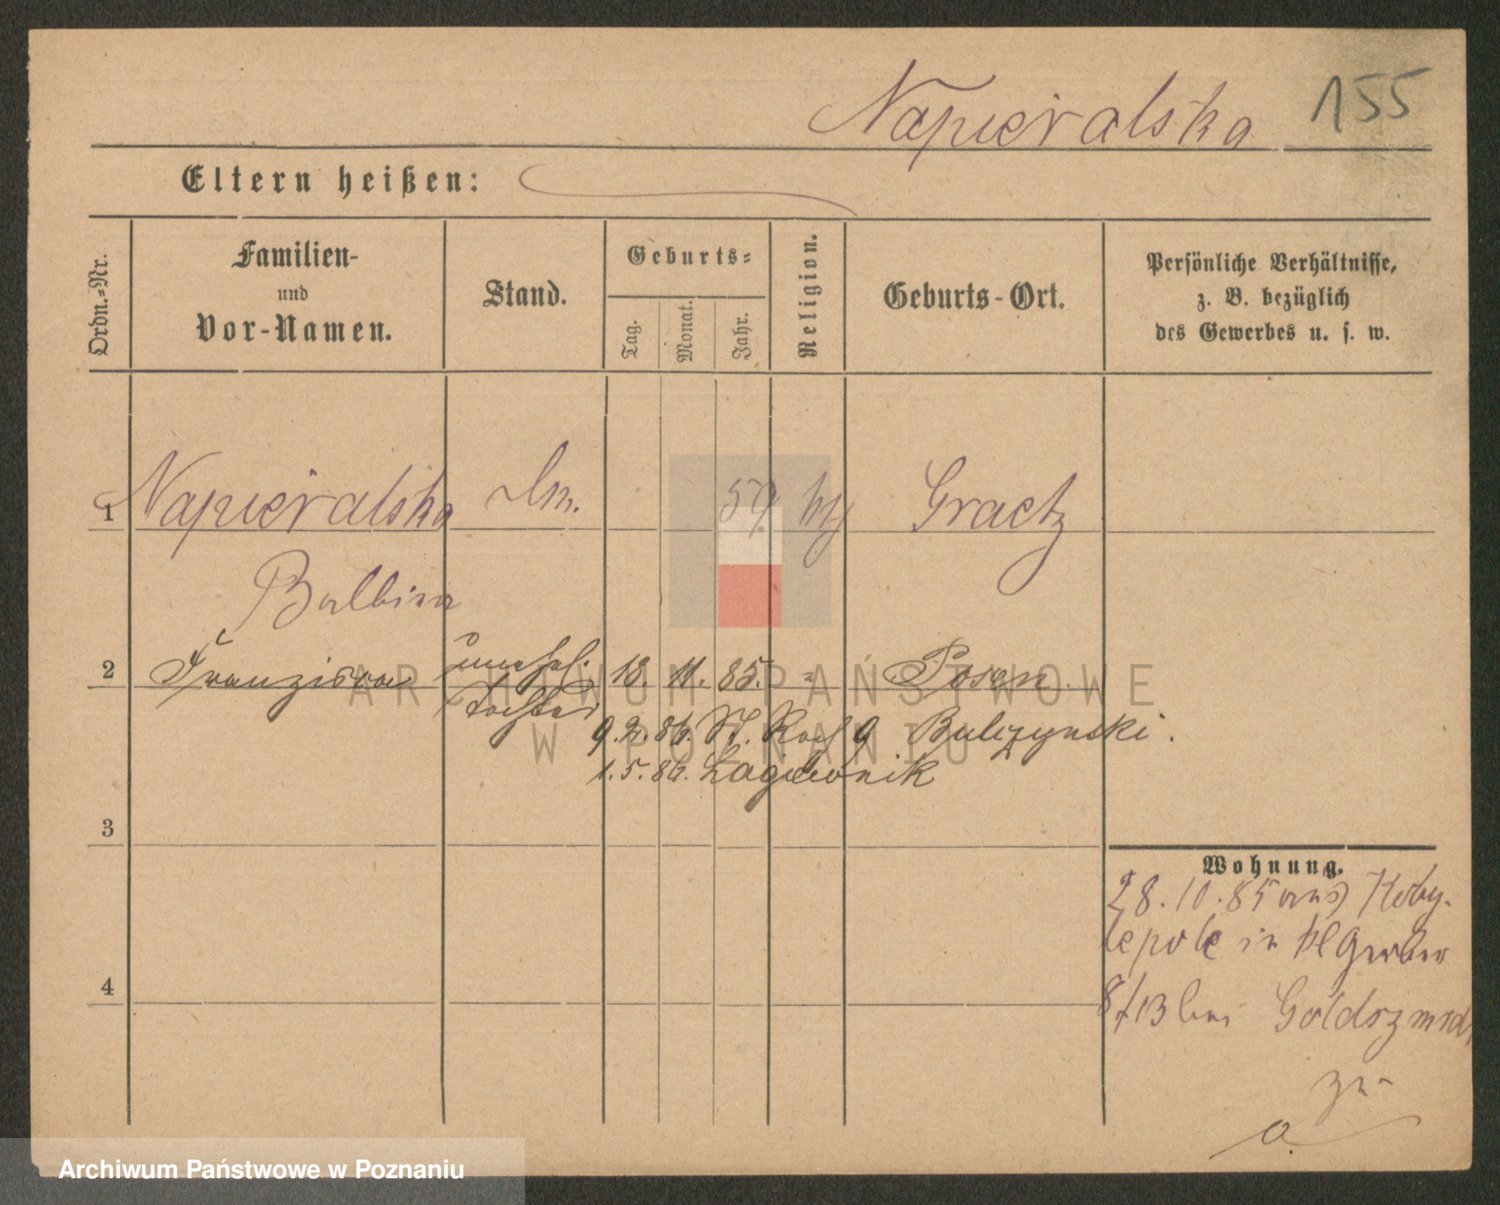 Napieralska 155
Eltern heißen:
Ordn.-Nr.
Familien-
und
Vor-Namen.
Stand.
Geburts-
Tag.
Monat.
Jahr.
Religion.
Geburts-Ort.
Persönliche Verhältnisse,
z. B. bezüglich
des Gewerbes u. s. w.
1 Napieralska 59 Graetz
Balbina
2 Franziska unehel. 18. 11. 85. " Posen.
Tochter
9.2.86. St. Roch 9 Bulczynski.
1.5.86. Lagiewnik
3
Wohnung.
28.10.85 aus Koby-
lepole in kl Gerber
4
8/13 bei Goldszmid,
zu
a.
ARCHIWUM PAŃSTWOWE
W POZNANIU
Archiwum Państwowe w Poznaniu